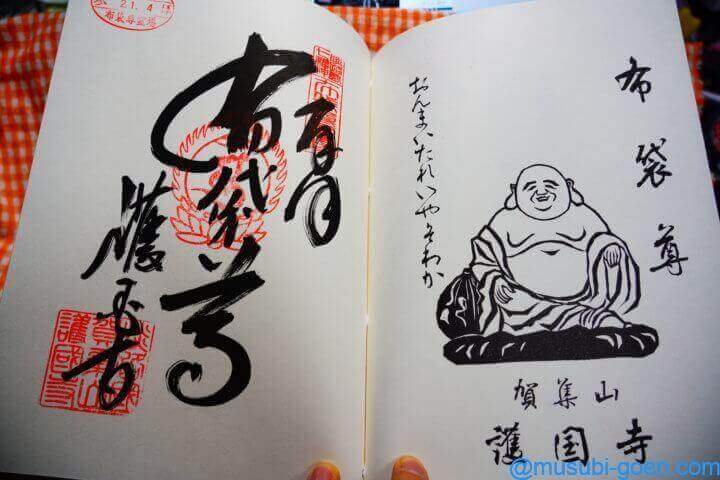 布袋尊
おんまいたれいやそわか
賀集山
護国寺
奉拝
布袋尊
護国寺
21.4
布袋尊霊場
@musubi-goen.com